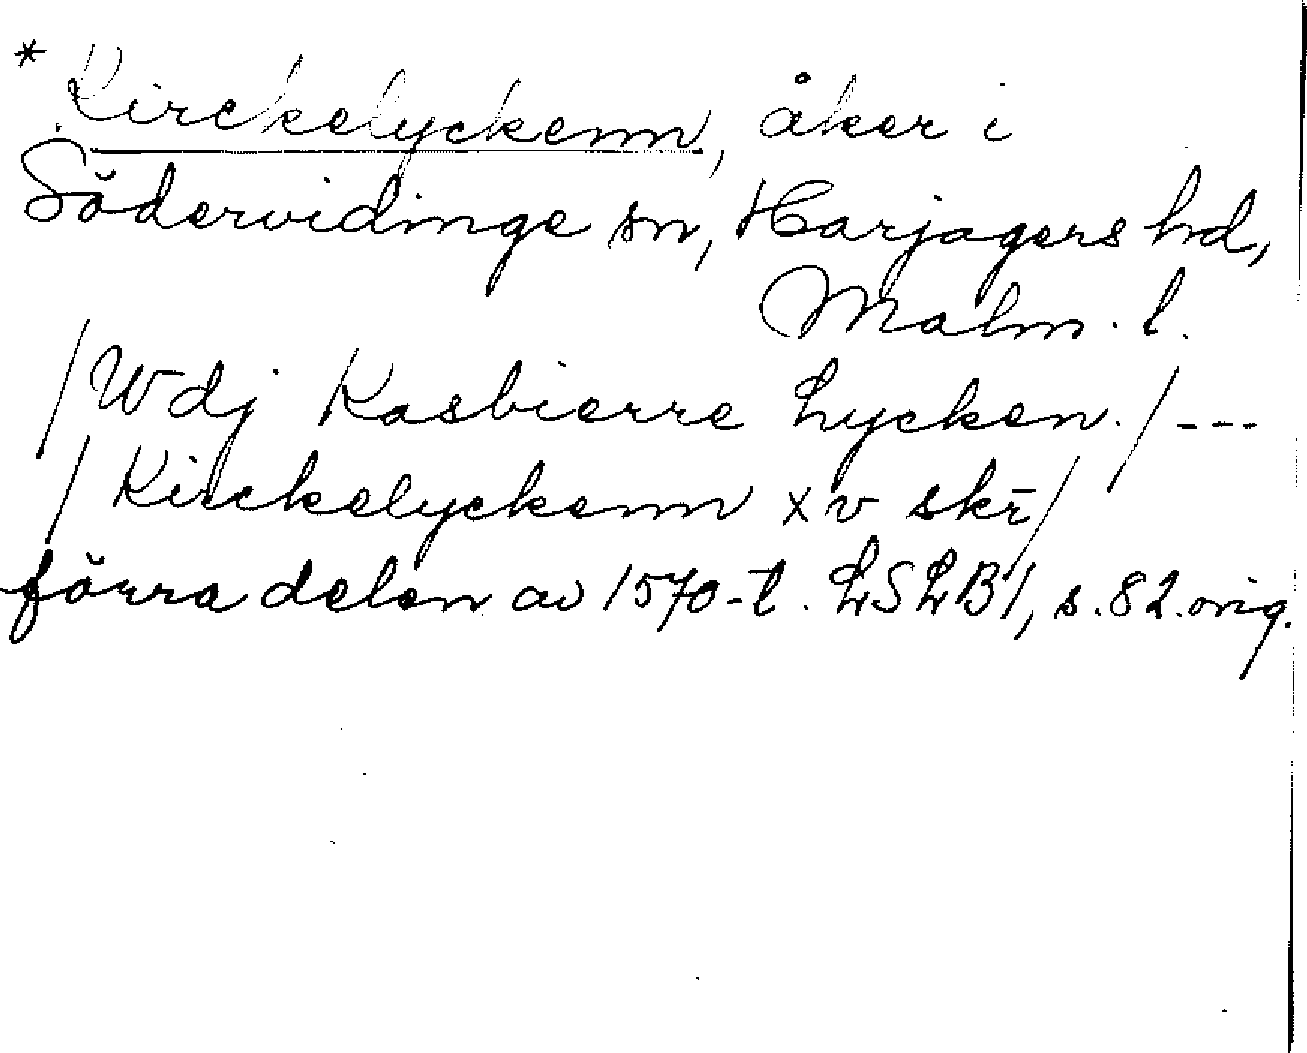 * Kirckelyckenn, åker i
Södervidinge sn, Harjagers hd,
Malm. l.
/Wdj Kasbierre Lycken./---
/Kirckelyckenn x v skr/
förra delen av 1570-t. LSLB1, s. 82. orig.